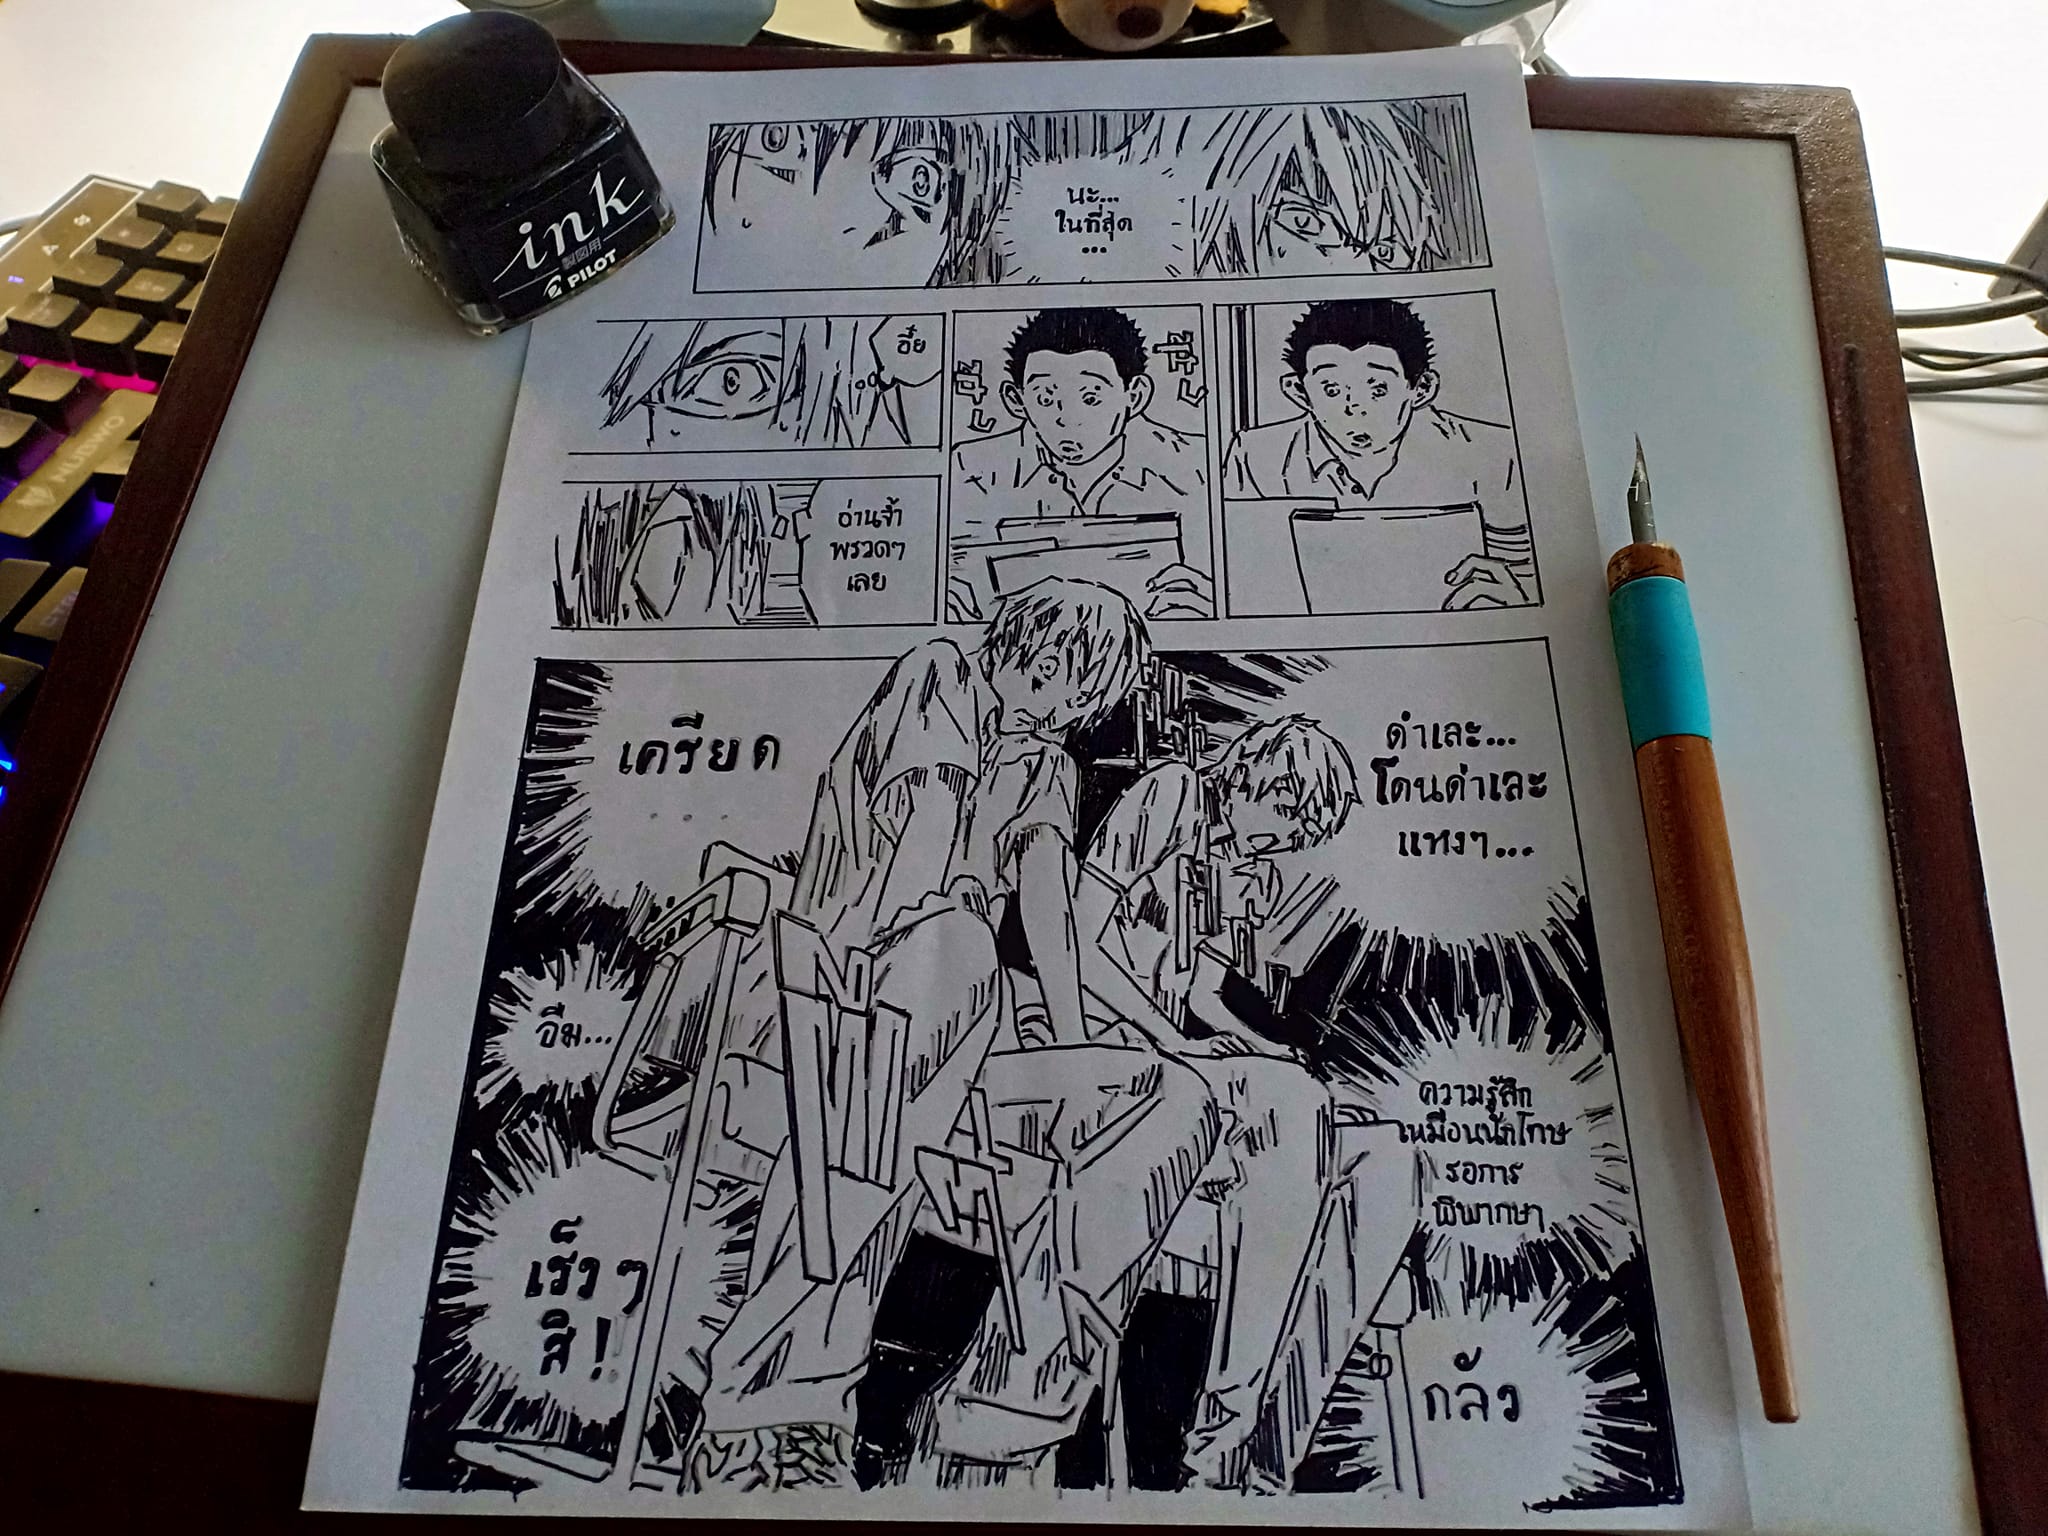 ink
製図用
PILOT
NUBWO
นะ...
ในที่สุด
...
อึ๋ย
อ่านจ้ำ
พรวดๆ
เลย
เครียด
....
ดำเละ...
โดนด่าเละ
แหงๆ...
อืม...
ความรู้สึก
เหมือนนักโทษ
รอการ
พิพากษา
เร็วๆ
สิ!
กลัว